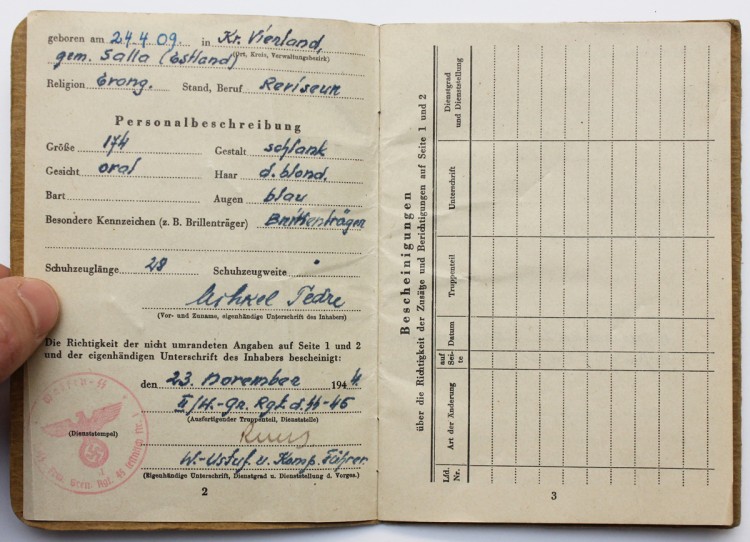 geboren am 24.4.09. in Kr. Vierland,
gem. Salla (Estland) (Ort, Kreis, Verwaltungsbezirk)
Religion Evang. Stand, Beruf
Personalbeschreibung
Größe 174 Gestalt schlank
Gesicht oval Haar d. blond.
Bart Augen blau
Besondere Kennzeichen (z. B. Brillenträger) Brillenträger
Schuhzeuglänge 28 Schuhzeugweite
(Vor- und Zuname, eigenhändige Unterschrift des Inhabers)
Die Richtigkeit der nicht umrandeten Angaben auf Seite 1 und 2
und der eigenhändigen Unterschrift des Inhabers bescheinigt:
den 23. November 1944.
II/W.-Gr. Rgt. d. SS-45
(Ausfertigender Truppenteil, Dienststelle)
(Dienststempel)
Waffen-SS
W.-Ustuf. u. Komp. Führer
(Eigenhändige Unterschrift, Dienstgrad u. Dienststellung d. Vorges.)
2
Bescheinigungen
über die Richtigkeit der Zusätze und Berichtigungen auf Seite 1 und 2
Lfd. Nr.
Art der Änderung
auf Sei-te
Datum
Truppenteil
Unterschrift
Dienstgrad und Dienststellung
3